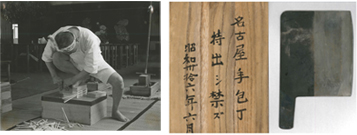 名古屋手包丁
持出シ禁ズ
昭和拾六年六月